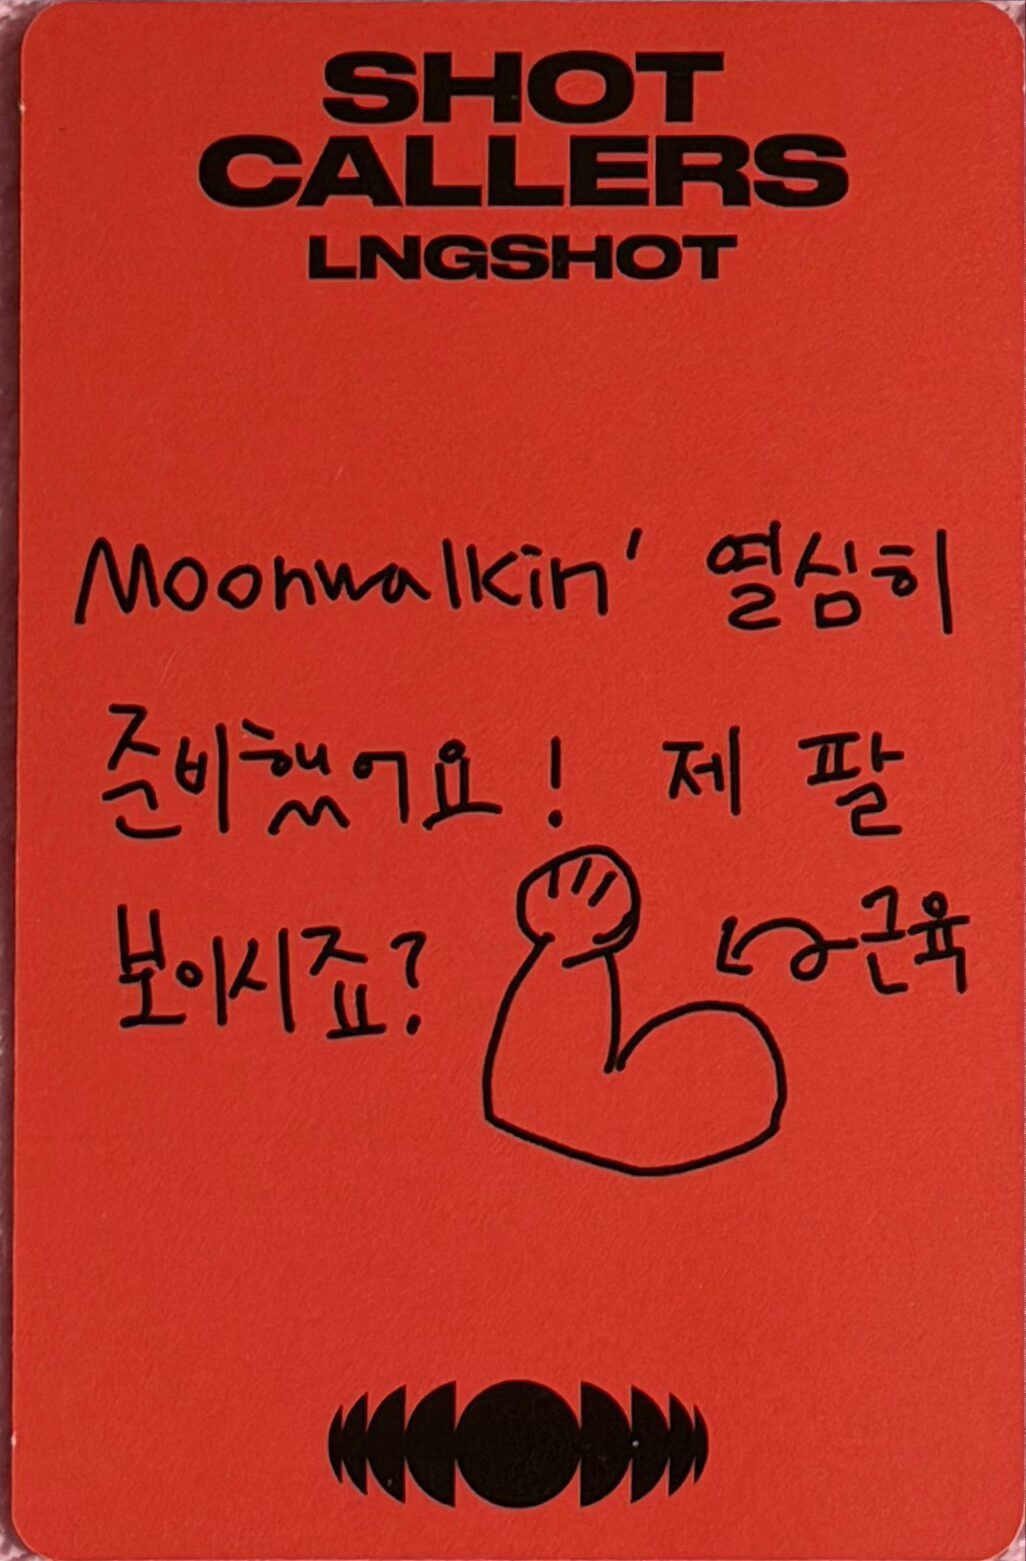 SHOT
CALLERS
LNGSHOT
Moonwalkin' 열심히
준비했어요! 제 팔
보이시죠?
근육